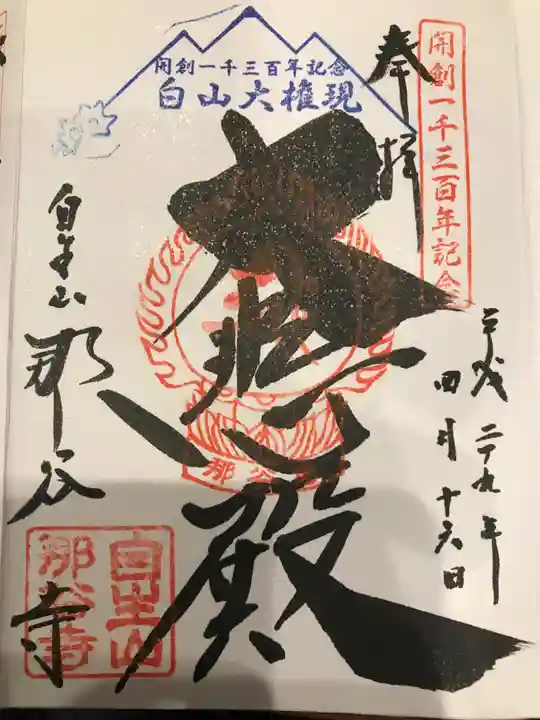 開創一千三百年記念
奉拝
開創一千三百年記念
白山大権現
大悲殿
平成二十九年
四月十六日
自生山那谷寺
那谷寺
自生山
那谷寺